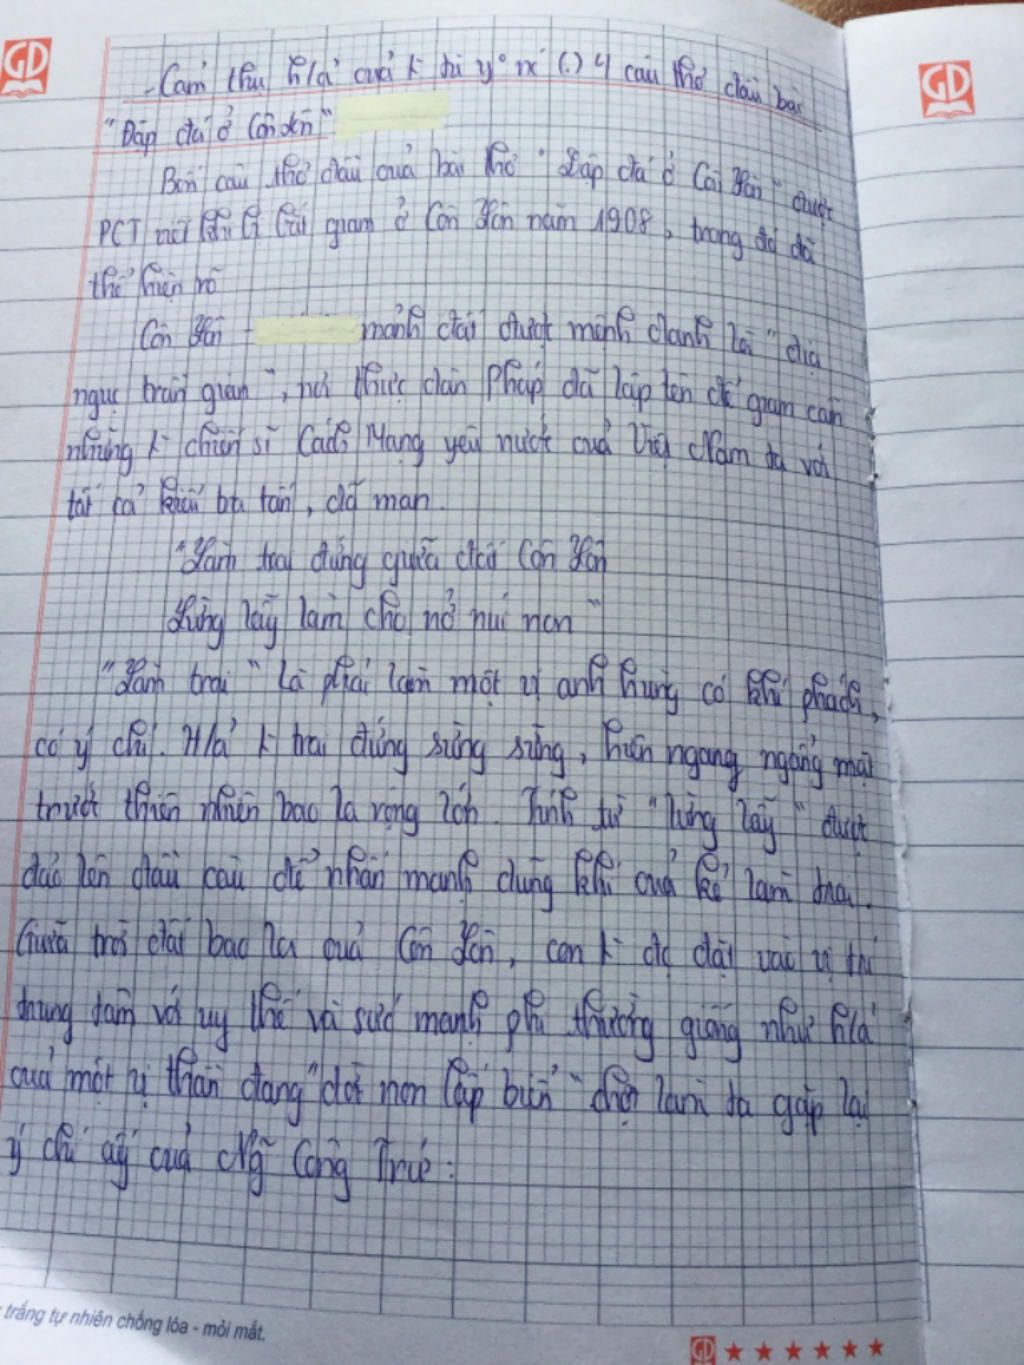 GD
GD
- Cảm thụ h/ả của k chí y° nc (.) 4 câu thơ đầu bài
"Đập đá ở Côn Lôn"
Bốn câu thơ đầu của bài thơ "Đập đá ở Côn Lôn" được
PCT khi bị bắt giam ở Côn Lôn năm 1908, trong đó đã
thể hiện rõ
Côn Lôn - mảnh đất được mệnh danh là "địa
ngục trần gian", nơi thực dân Pháp đã lập lên để giam cầm
những chiến sĩ Cách Mạng yêu nước của Việt Nam ta với
tất cả kiểu tra tấn, dã man.
"Làm trai đứng giữa đất Côn Lôn
Lừng lẫy làm cho nở núi non"
"Làm trai" là phải làm một vị anh hùng có khí phách,
có ý chí. H/ả trai đứng sừng sững, hiên ngang ngẩng mặt
trước thiên nhiên bao la rộng lớn. Tính từ "lừng lẫy" được
đảo lên đầu câu để nhấn mạnh dũng khí của kẻ làm trai.
Giữa trời đất bao la của Côn Lôn, con đc đặt vào vị thế
trung tâm với uy thế và sức mạnh phi thường giống như h/ả
của một vị thần đang "dời non lấp biển" chợt làm ta gặp lại
ý chí ấy của Ng~ Công Trứ:
trắng tự nhiên chống lóa - mỏi mắt.
GD ★ ★ ★ ★ ★ ★